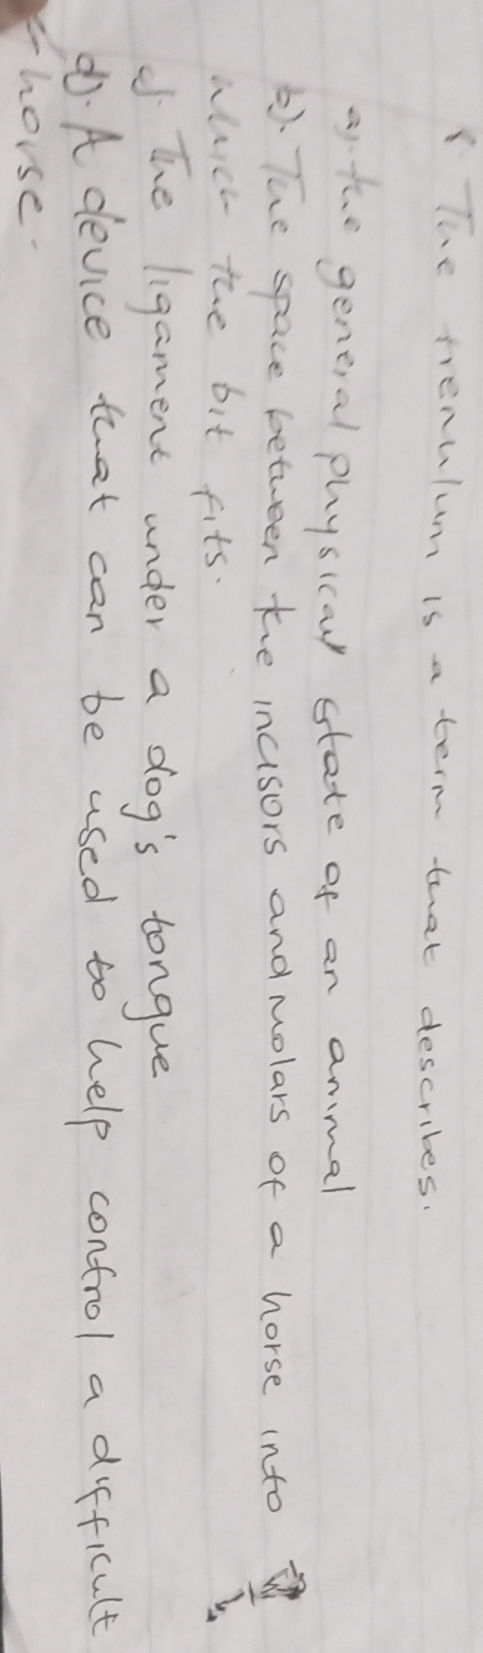 1. The frenulum is a term that describes.
a). the general physical state of an animal
b). The space between the incisors and molars of a horse into
which the bit fits.
c). The ligament under a dog's tongue
d). A device that can be used to help control a difficult
horse.